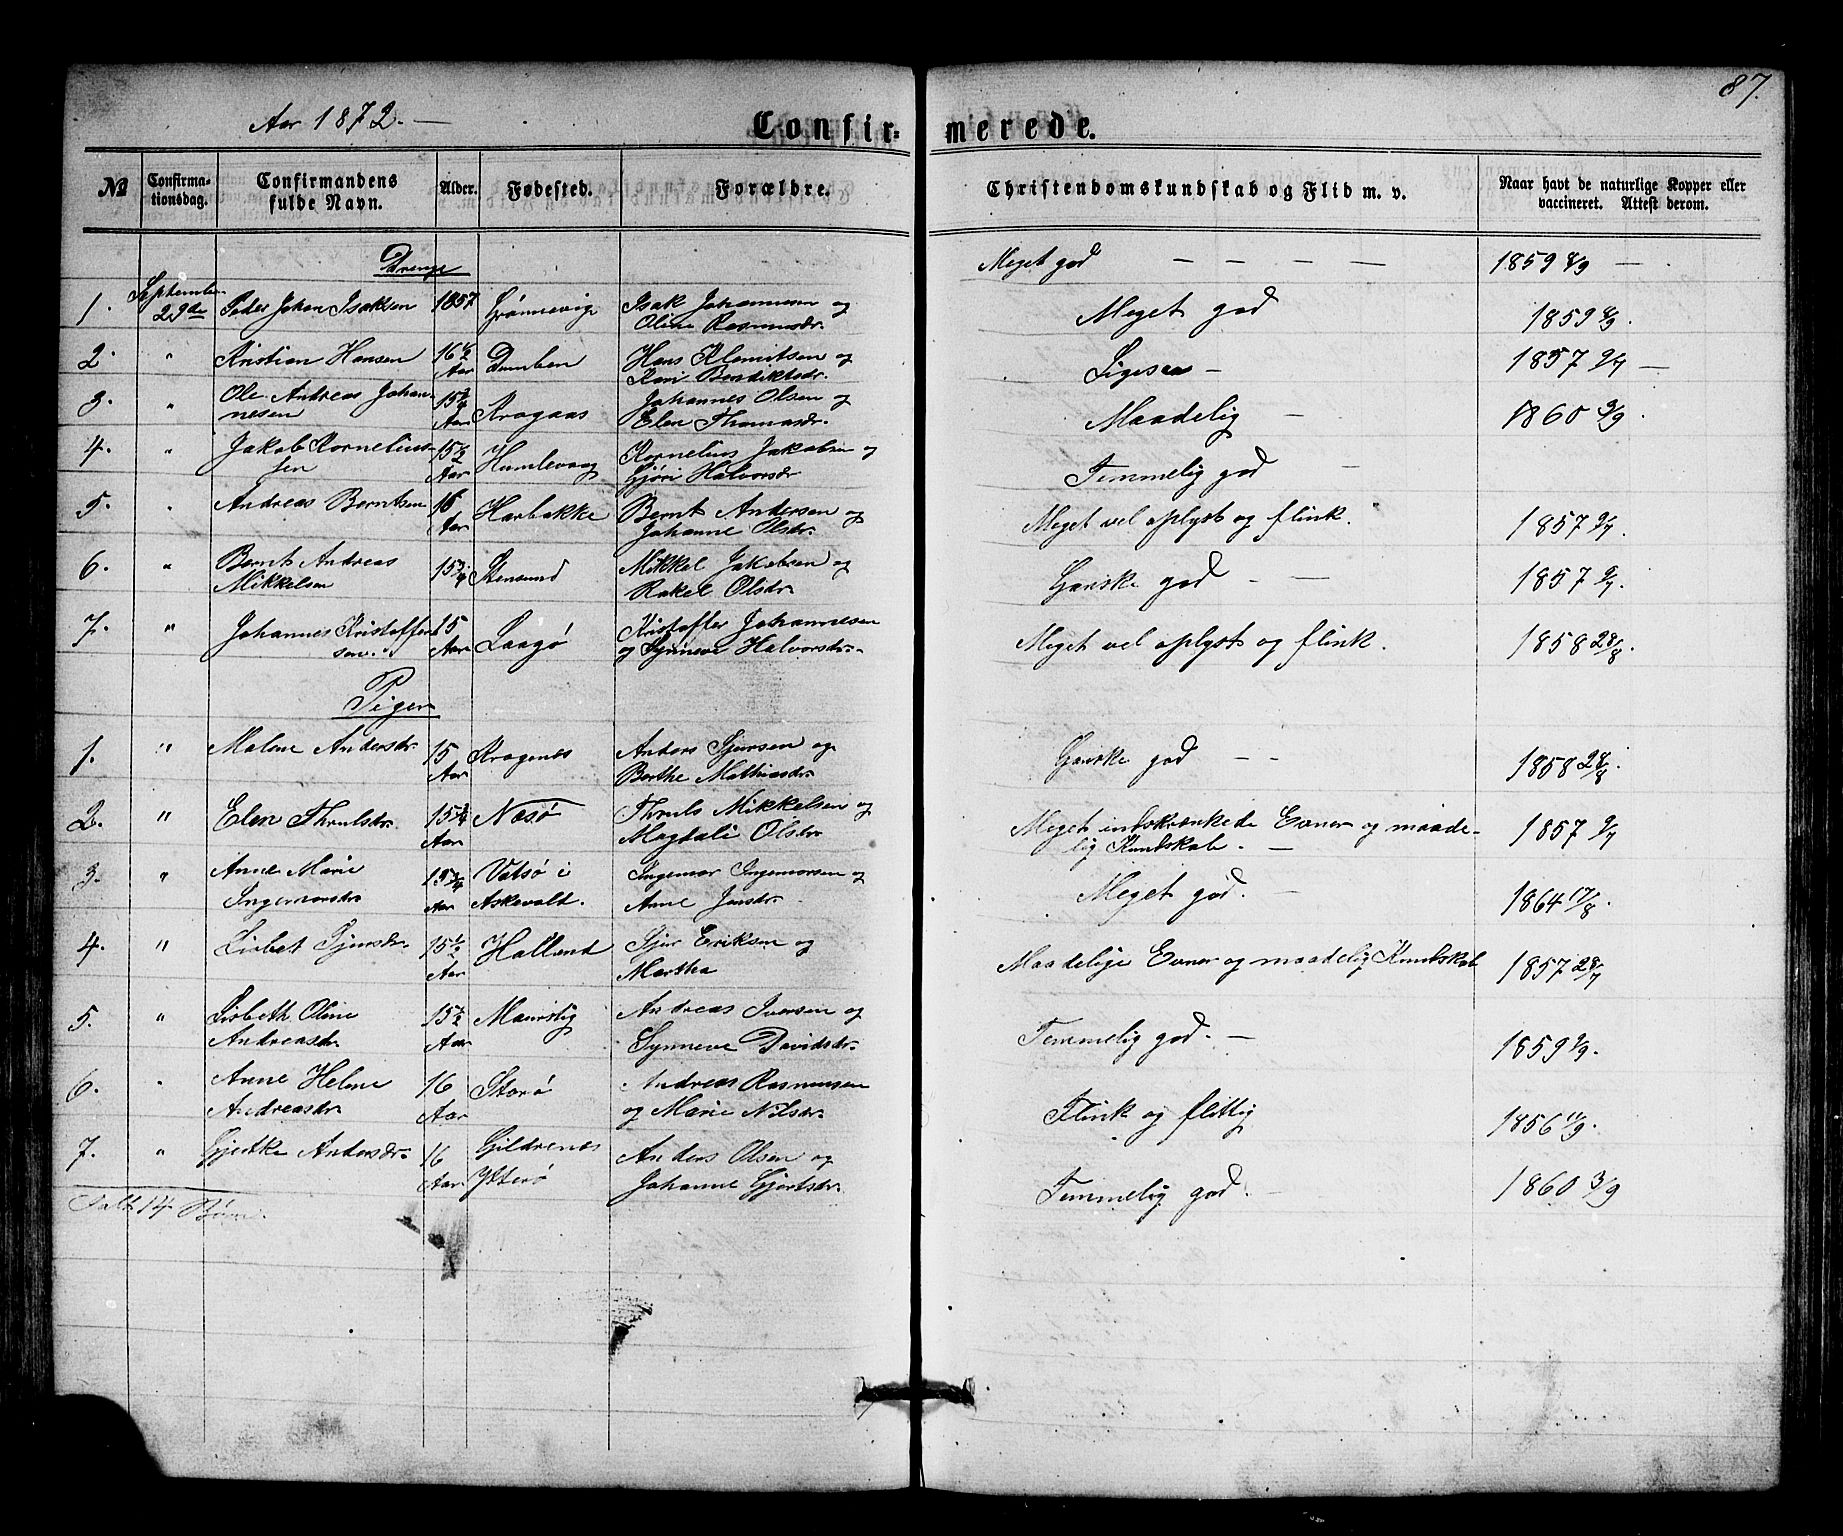 87.
Aar 1872.—
Confir=merede.
No Confirmationsdag. Confirmandens fulde Navn. Alder. Fødested. Forældre. Christendomskundskab og Flid m. v. Naar havt de naturlige Kopper eller vaccineret. Attest derom.
Drenge Meget god — — — — 1859 8/9 —
1. September 29de Peder Johan Isaksen 1857 Grønnevig Isak Johannesen og Oline Rasmusdr. Meget god 1859 8/9.
2. " Kristian Hansen 16 1/2 Aar Dumben Hans Klemitsen og Kari Bendiktsdr. Ligesaa — 1857 9/7 —
3. " Ole Andreas Johannesen 15 3/4 Aar Kragaas Johannes Olsen og Elen Thomasdr. Maadelig — 1860 3/9.
4. " Jakob Korneliussen 15 1/2 Aar Humlevaag Kornelius Jakobsen og Gjøri Halvorsdr. Temmelig god —
5. " Andreas Berntsen 16 Aar Harbakke Bernt Andersen og Johanne Olsdr. Meget vel oplyst og flink. 1857 9/7.
6. " Bernt Andreas Mikkelsen 15 3/4 Stensund Mikkel Jakobsen og Rakel Olsdr. Ganske god — — 1857 9/7.
7. " Johannes Kristoffersen. 15 Aar Laagø Kristoffer Johannesen og Synneve Halvorsdr. Meget vel oplyst og flink. 1858 28/8.
Piger
1. " Malene Andersdr. 15 Aar Kragenes Anders Sjursen og Berthe Mathiasdr. Ganske god — — 1858 28/8.
2. " Elen Thrulsdr. 15 3/4 Aar Nesø Thruls Mikkelsen og Magdali Olsdr. Meget indskrænkede Evner og maadelig Kundskab. — 1857 9/7
3. " Anne Marie Ingemorsdr. 15 3/4 Aar Vatsø i Askevold. Ingemar Ingemorsen og Anne Jensdr. Meget god. — 1864 17/8.
4. " Lisbet Sjursdr. 15 1/2 Aar Halland Sjur Eriksen og Martha Maadelige Evner og maadelig Kundskab 1857 28/7
5. " Lisbeth Oline Andreasdr. 15 1/2 Aar Maurstig Andreas Iversen og Synneve Davidsdr. Temmelig god. — 1859 8/9.
6. " Anne Helene Andreasdr. 16 Aar Storø Andreas Rasmussen og Marie Nilsdr. Flink og flittig 1856 11/9.
7. " Gjertke Andersdr. 16 Aar Gildrenes Ytterø Anders Olsen og Johanne Gjertsdr. Temmelig god. — 1860 3/9
Ialt 14 Børn.